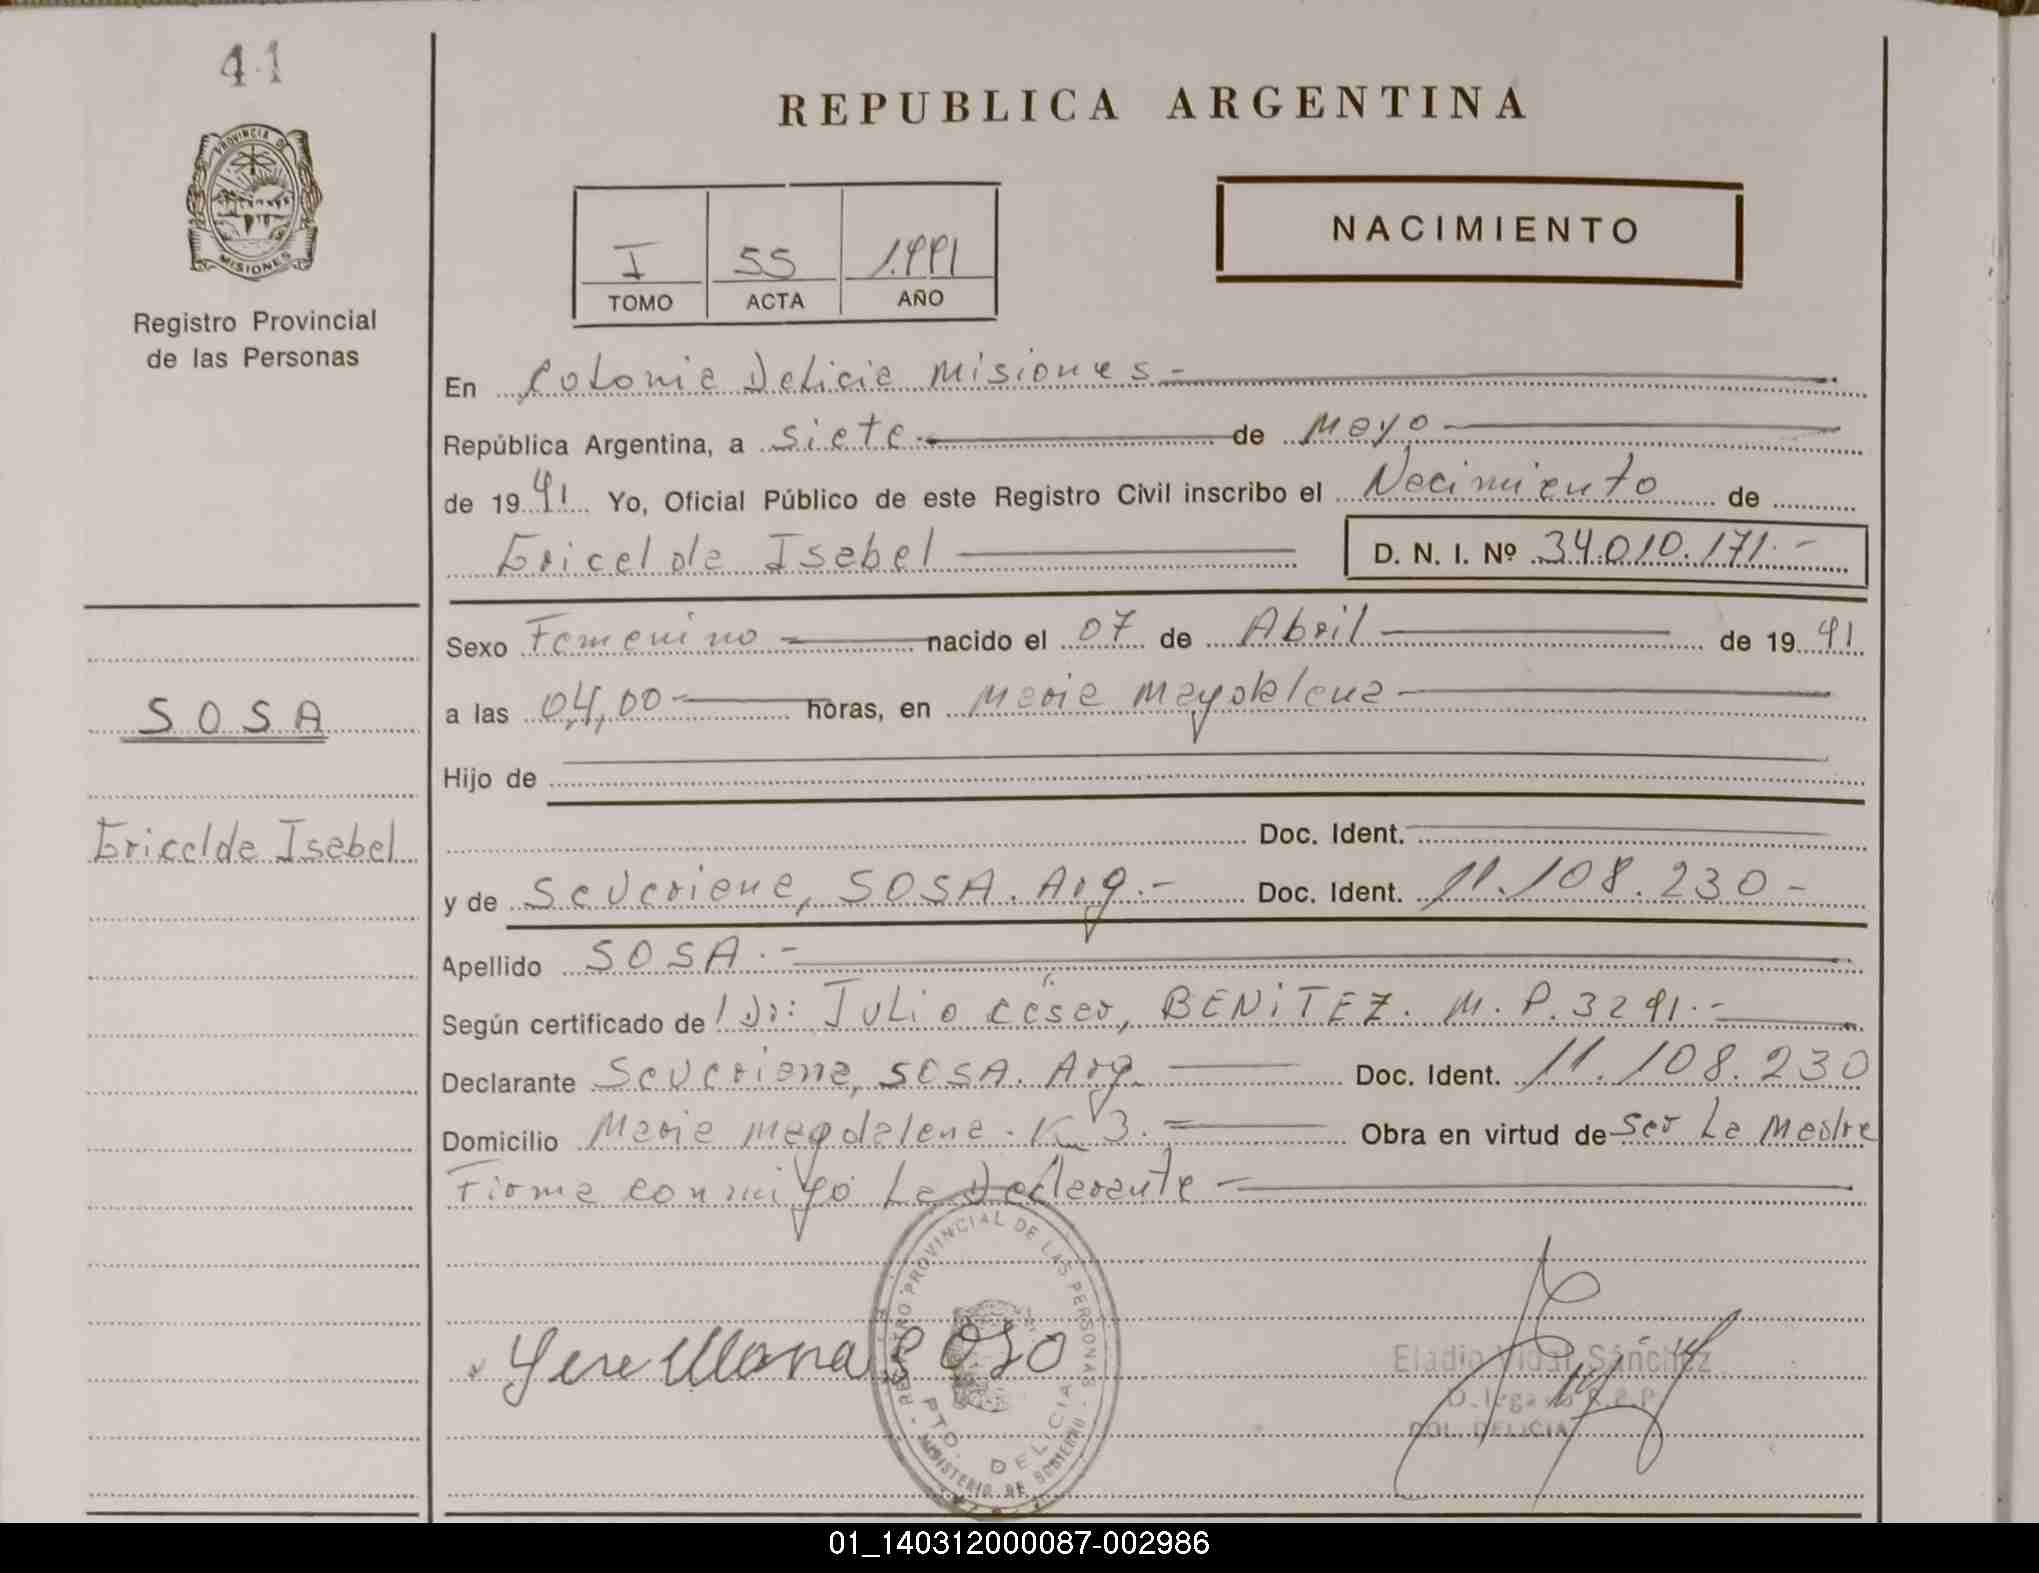 41
PROVINCIA DE
MISIONES
Registro Provincial
de las Personas
REPUBLICA ARGENTINA
NACIMIENTO
I 55 1.991
TOMO ACTA AÑO
En Colonia Delicia Misiones.-
República Argentina, a siete.- de Mayo
de 1991 Yo, Oficial Público de este Registro Civil inscribo el Nacimiento de
Gricelda Isabel D. N. I. Nº 34.010.171.-
Sexo Femenino nacido el 07 de Abril de 1991
a las 04,00- horas, en Maria Magdalena-
Hijo de
Doc. Ident.
y de Severiana, SOSA. Arg.- Doc. Ident. 11.108.230-
Apellido SOSA.-
Según certificado de Dr: Julio César, BENITEZ. M.P.3291.-
Declarante Severiana, SOSA. Arg. Doc. Ident. 11.108.230
Domicilio Maria Magdalena. K 3.- Obra en virtud de Ser La Madre
Firma conmigo La Declarante-
SOSA
Gricelda Isabel
REGISTRO PROVINCIAL DE LAS PERSONAS
PTO. DELICIA
MINISTERIO DE GOBIERNO
Sosa
Eladio Vidal Sánchez
Delegado R.P.P.
COL. DELICIA
01_140312000087-002986